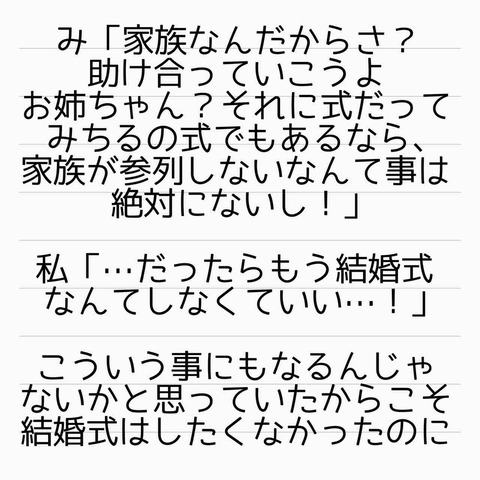 み「家族なんだからさ？
助け合っていこうよ
お姉ちゃん？それに式だって
みちるの式でもあるなら、
家族が参列しないなんて事は
絶対にないし！」
私「…だったらもう結婚式
なんてしなくていい…！」
こういう事にもなるんじゃ
ないかと思っていたからこそ
結婚式はしたくなかったのに